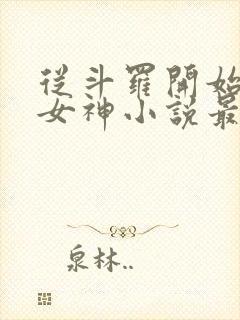 從斗羅開始
女神小說最
泉林..